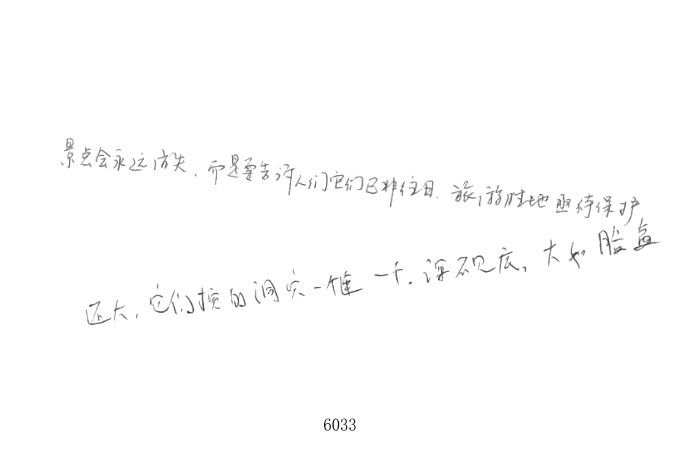 景点会永远消失，而是要告诉人们它们已非往日，旅游胜地亟待保护
还大，它们挖的洞穴一个连一个，深不见底，大如脸盆
6033